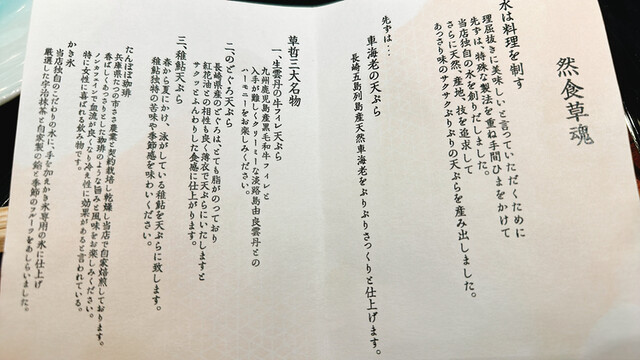 然食草魂
水は料理を制す
理屈抜きに美味しいと言っていただくために
先ずは、特殊な製法を重ね手間ひまをかけて
当店独自の水を創りだしました。
さらに天然、産地、技を追求して
あっさり味のサクサクぷりぷりの天ぷらを産み出しました。
先ずは…
車海老の天ぷら
長崎五島列島産天然車海老をぷりぷりさっくりと仕上げます。
草哲三大名物
一、生雲丹の牛フィレ天ぷら
九州鹿児島産黒毛和牛フィレと
入手が難しくクリーミーな淡路島由良雲丹との
ハーモニーをお楽しみください。
二、のどぐろ天ぷら
長崎県産のどぐろは、とても脂がのっており
紅花油との相性も良く薄衣で天ぷらにいたしますと
サクッとふんわりした食感に仕上がります。
三、稚鮎天ぷら
春から夏にかけ、泳がしている稚鮎を天ぷらに致します。
稚鮎独特の苦味や季節感を味わいください。
たんぽぽ珈琲
兵庫県たつの市ささ農業と契約栽培し乾燥し当店で自家焙煎しております。
香ばしくあっさりとした珈琲のような旨みと風味をお楽しみください。
ノンカフェインで血流が良くなり冷え性に効果があると言われている。
特に女性に喜ばれる飲み物です。
かき氷
当店独自のこだわりの水に、手を加えかき氷専用の氷に仕上げ
厳選した宇治抹茶と自家製の餡と季節のフルーツをあしらいました。